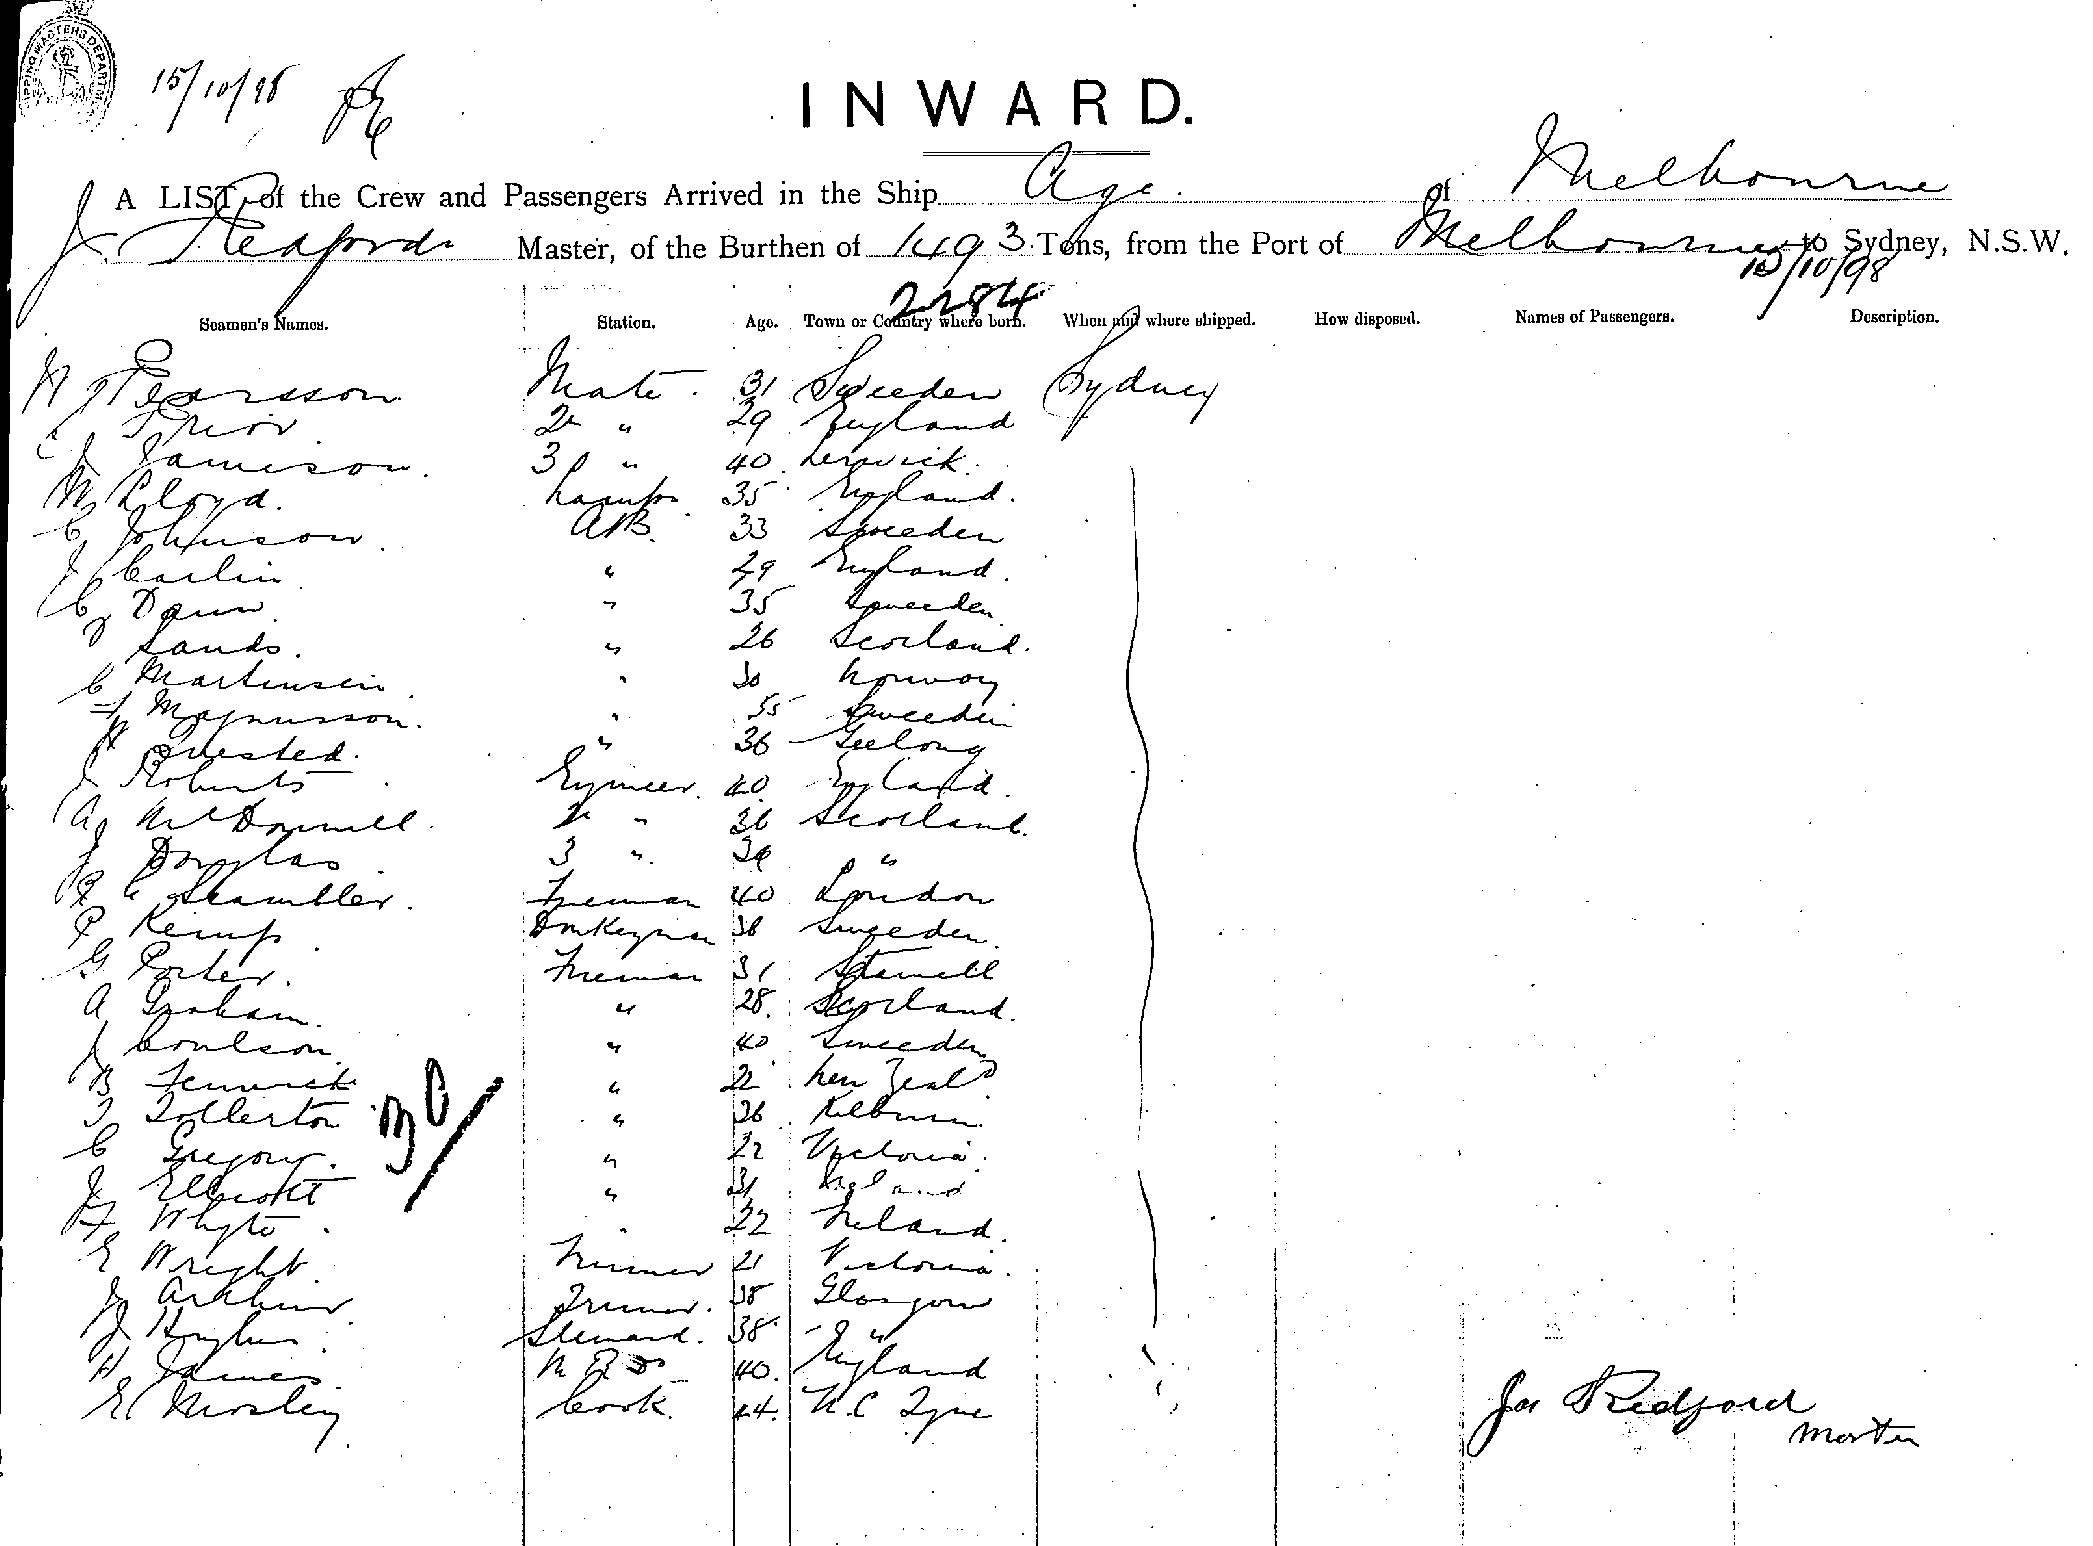 SHIPPING MASTERS DEPARTMENT
15/10/98
INWARD.
A LIST of the Crew and Passengers Arrived in the Ship Age. of Melbourne
J. Redford Master, of the Burthen of 1493 Tons, from the Port of Melbourne to Sydney, N.S.W.
15/10/98
2284
Seamen's Names. Station. Age. Town or Country where born. When and where shipped. How disposed. Names of Passengers. Description.
Pearsson Mate. 31 Sweeden Sydney
Prior 2 " 29 England
J Jameson. 3 " 40 Lerwick.
W Lloyd. Lamps 35 England.
C Johnson. AB. 33 Sweeden
J Carlin " 29 England.
C Daun. " 35 Sweeden
Sands. " 26 Scotland.
C Martinsein. " 30 Norway
Magnusson. " 35 Sweeden
Quested. " 36 Geelong
J Roberts Engineer. 40 England.
A McDonnell. 2 " 36 Scotland.
J Douglas 3 ". "
Scambler. Fireman 40 London
P Kemp. Donkeyman 36 Sweeden.
G Porter. Fireman 31 Stawell
A Graham. " 28. Scotland.
J Coulson. " 40 Sweeden
B Fenwick " 22 New Zeald
T Tollerton " 26
C Gregory. " 22 Victoria.
J Elliott " 31 Ireland
F Whyte. " 22 Ireland.
E Wright. Trimmer 21 Victoria.
J Arthur Trimer. 38 Glasgow
J Hughes. Steward. 38 "
H James. 40. England
E Mosley Cook. 44. N.C Tyne
30/
Jas Redford
Master